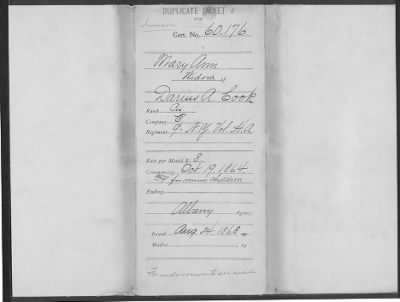 DUPLICATE JACKET
FOR
Cert. No. 60.176
Mary Ann
Widow of
Darius A Cook
Rank
Company E
Regiment 9. N.Y. Vol. H.A
Rate per Month $ 8
Commencing Oct 19. 1864
for minor children
Ending
Albany
Issued Aug. 24. 1868
Mailed